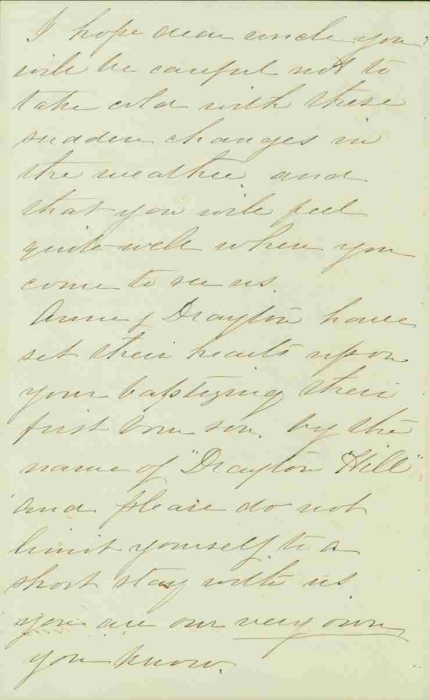 I hope dear uncle you
will be careful not to
take cold with these
sudden changes in
the weather, and
that you will feel
quite well when you
come to see us.
Anne & Drayton have
set their hearts upon
your baptizing their
first born son, by the
name of "Drayton Hill"
and please do not
limit yourself to a
short stay with us
you are our very own
you know.